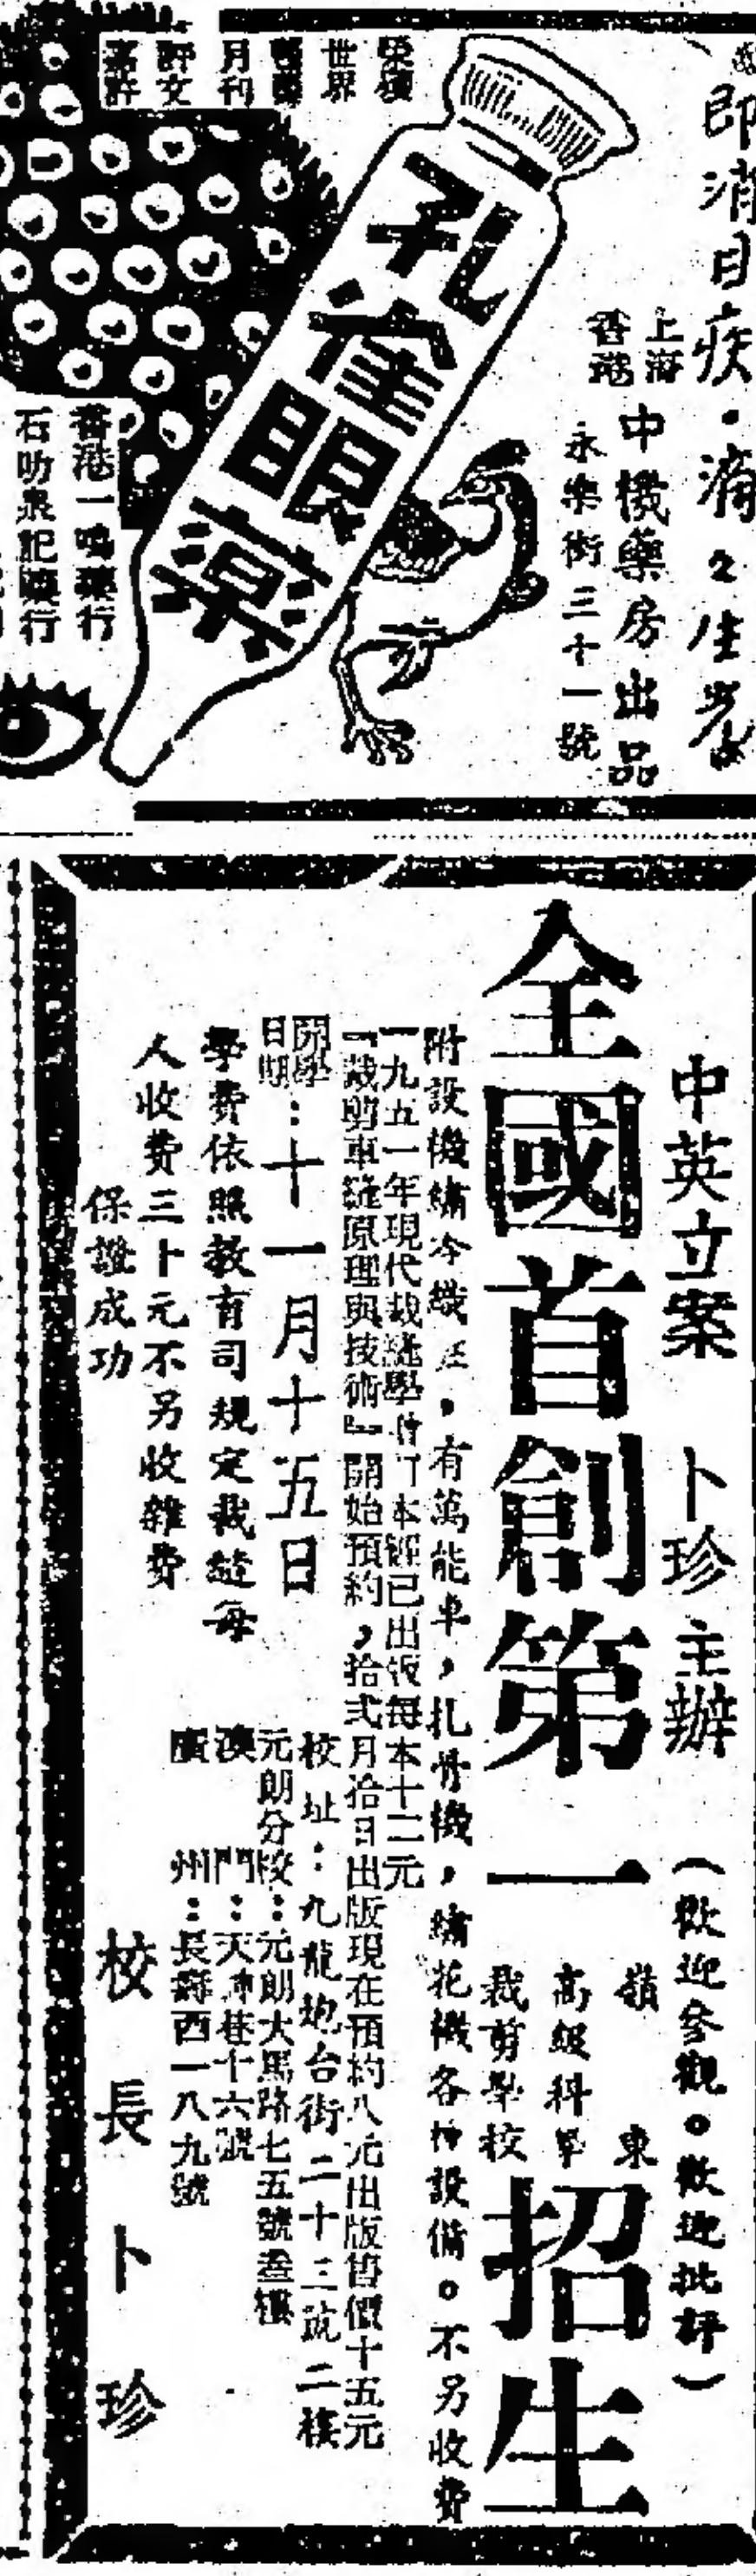 即滴目疾・滴々生光
上海
香港
中機藥房出品
永樂街三十一號
孔雀眼藥
榮獲
世界
醫藥
月刊
評文
嘉許
香港一鳴藥行
石叻泉記藥行
中英立案　卜珍主辦　（歡迎參觀。歡迎批評）
全國首創第一
嶺東
高級科學
裁剪學校
招生
附設機繡冷織班，有萬能車，扎骨機，繡花機各種設備。不另收費
一九五一年現代裁縫學修訂本經已出版每本十二元
『裁剪車縫原理與技術』開始預約，拾弍月拾日出版現在預約八元出版售價十五元
開學
日期：十一月十五日
學費依照教育司規定裁縫每
人收費三十元不另收雜費
保證成功
校址：九龍砲台街二十三號二樓
元朗分校：元朗大馬路七五號叁樓
澳門：天神巷十六號
廣州：長壽西一八九號
校長卜珍